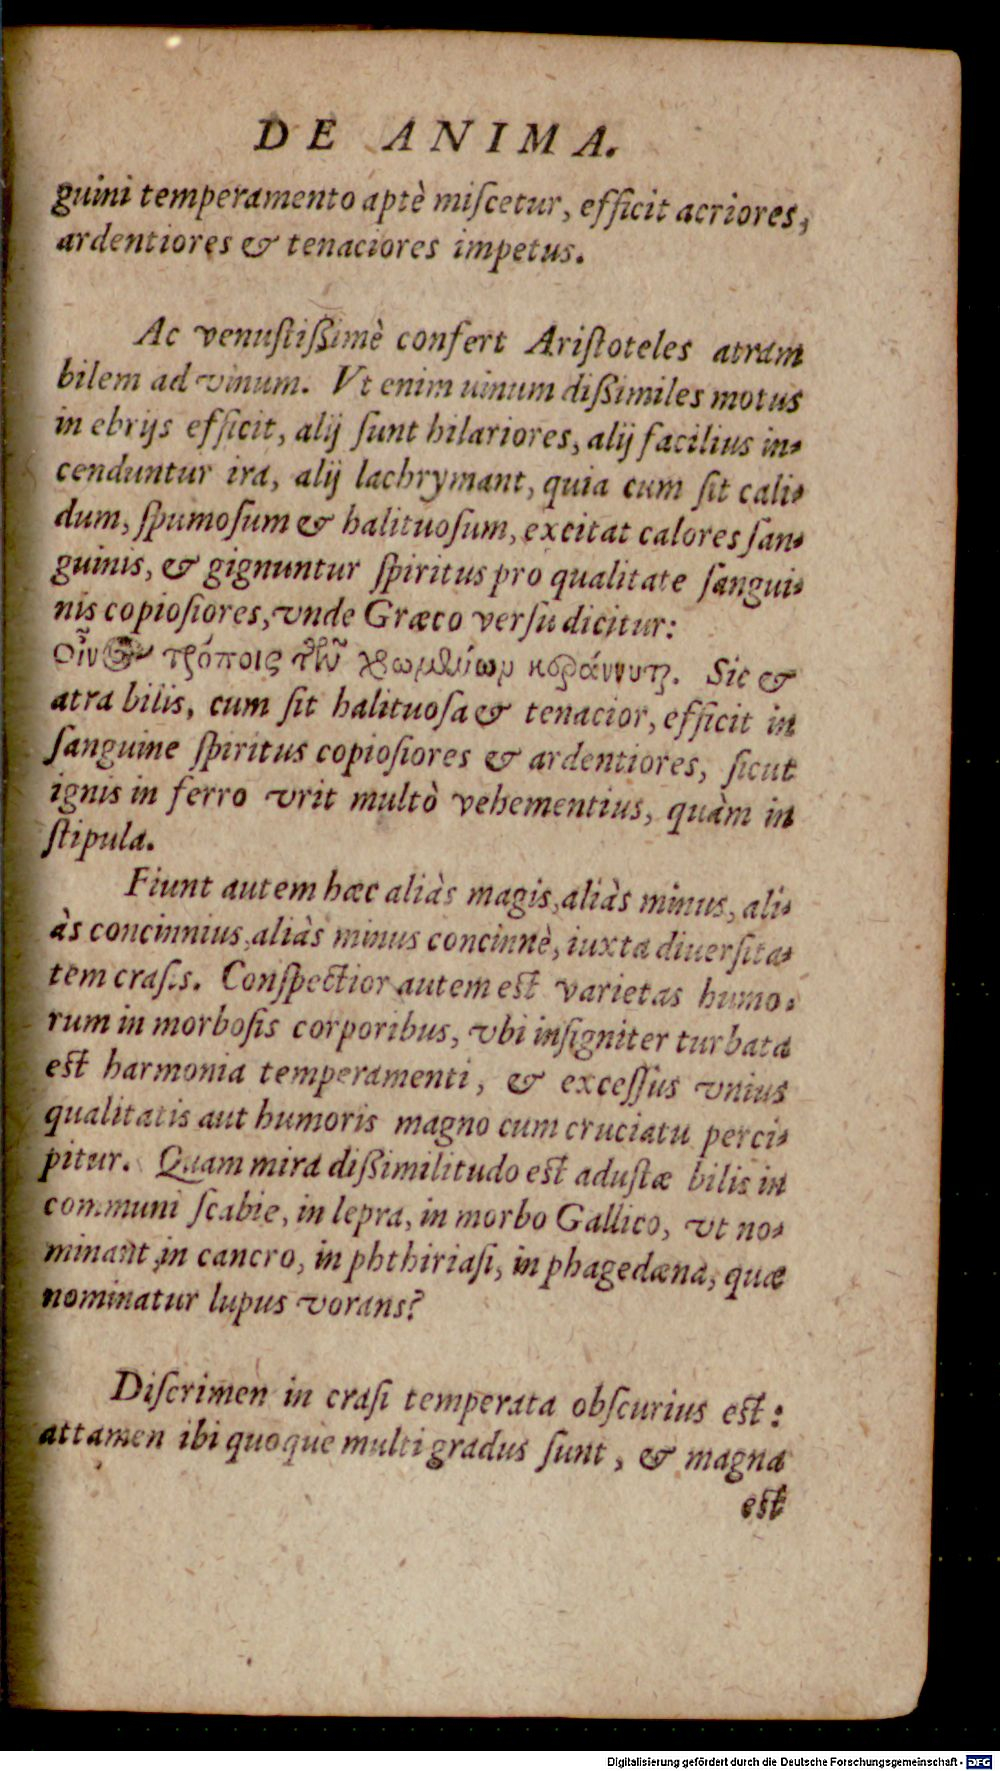 DE ANIMA.
guini temperamento aptè miſcetur, efficit acriores,
ardentiores & tenaciores impetus.
Ac venuſtißimè confert Ariſtoteles atram
bilem ad vinum. Vt enim uinum dißimiles motus
in ebrijs efficit, alij ſunt hilariores, alij facilius in-
cenduntur ira, alij lachrymant, quia cum ſit cali-
dum, ſpumoſum & halituoſum, excitat calores ſan-
guinis, & gignuntur ſpiritus pro qualitate ſangui-
nis copioſiores, vnde Græco verſu dicitur:
Οἶνος τρόποις τῶν χρωμένων κεράννυται. Sic &
atra bilis, cum ſit halituoſa & tenacior, efficit in
ſanguine ſpiritus copioſiores & ardentiores, ſicut
ignis in ferro vrit multò vehementius, quàm in
ſtipula.
Fiunt autem hæc aliàs magis, aliàs minus, ali-
às concinnius, aliàs minus concinnè, iuxta diuerſita-
tem craſis. Conſpectior autem eſt varietas humo-
rum in morboſis corporibus, vbi inſigniter turbata
eſt harmonia temperamenti, & exceſſus vnius
qualitatis aut humoris magno cum cruciatu perci-
pitur. Quam mira dißimilitudo eſt aduſtæ bilis in
communi ſcabie, in lepra, in morbo Gallico, vt no-
minant, in cancro, in phthiriaſi, in phagedæna, quæ
nominatur lupus vorans?
Diſcrimen in craſi temperata obſcurius eſt:
attamen ibi quoque multi gradus ſunt, & magna
eſt
Digitalisierung gefördert durch die Deutsche Forschungsgemeinschaft - DFG